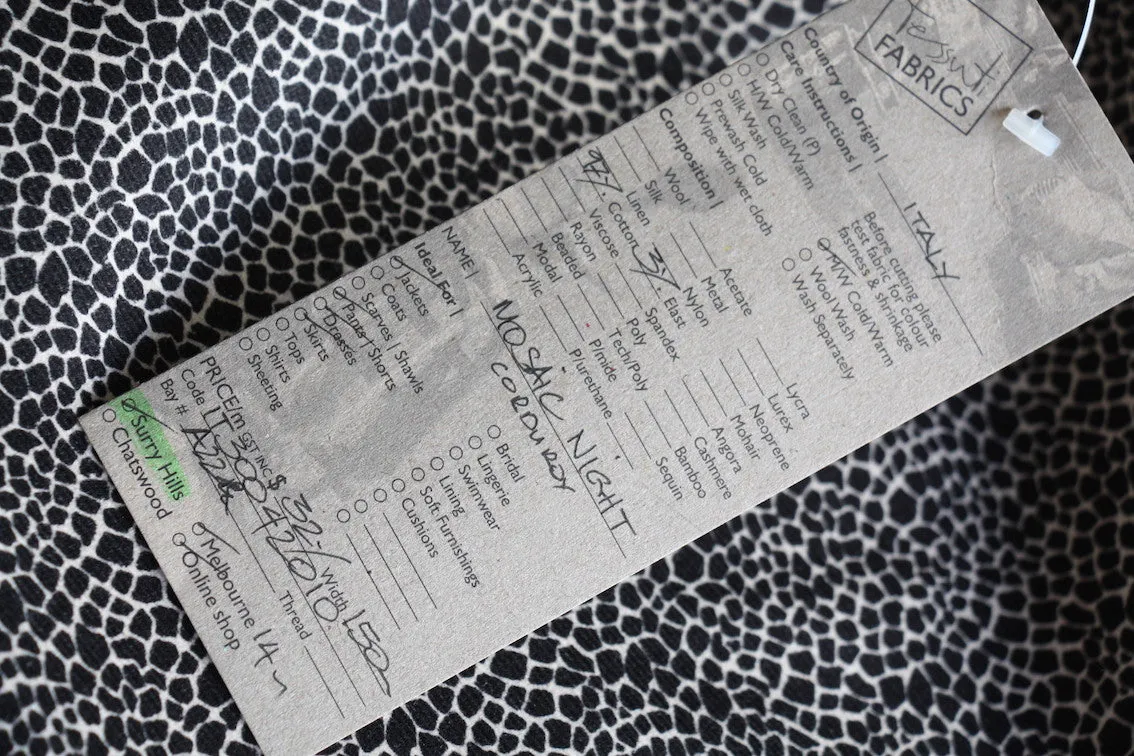 Tessuti
FABRICS
Country of Origin | ITALY
Care Instructions |
Before cutting please
test fabric for colour
fastness & shrinkage
Dry Clean (P)
H/W Cold/Warm
Silk Wash
Prewash Cold
Wipe with wet cloth
M/W Cold/Warm
Wool Wash
Wash Separately
Composition |
Wool
Silk
Linen
97% Cotton
Viscose
Rayon
Beaded
Modal
Acrylic
Acetate
Metal
Nylon
3% Elast
Spandex
Poly
Tech/Poly
P/mide
P/urethane
Lycra
Lurex
Neoprene
Mohair
Angora
Cashmere
Bamboo
Sequin
NAME | MOSAIC NIGHT
CORDUROY
Ideal For |
Jackets
Coats
Scarves | Shawls
Pants | Shorts
Dresses
Skirts
Tops
Shirts
Sheeting
Bridal
Lingerie
Swimwear
Lining
Soft Furnishings
Cushions
PRICE/m GST INC $ 32.- Width 150
Code IT300 42/010
Bay # Thread
Surry Hills
Chatswood
Melbourne 14m
Online shop